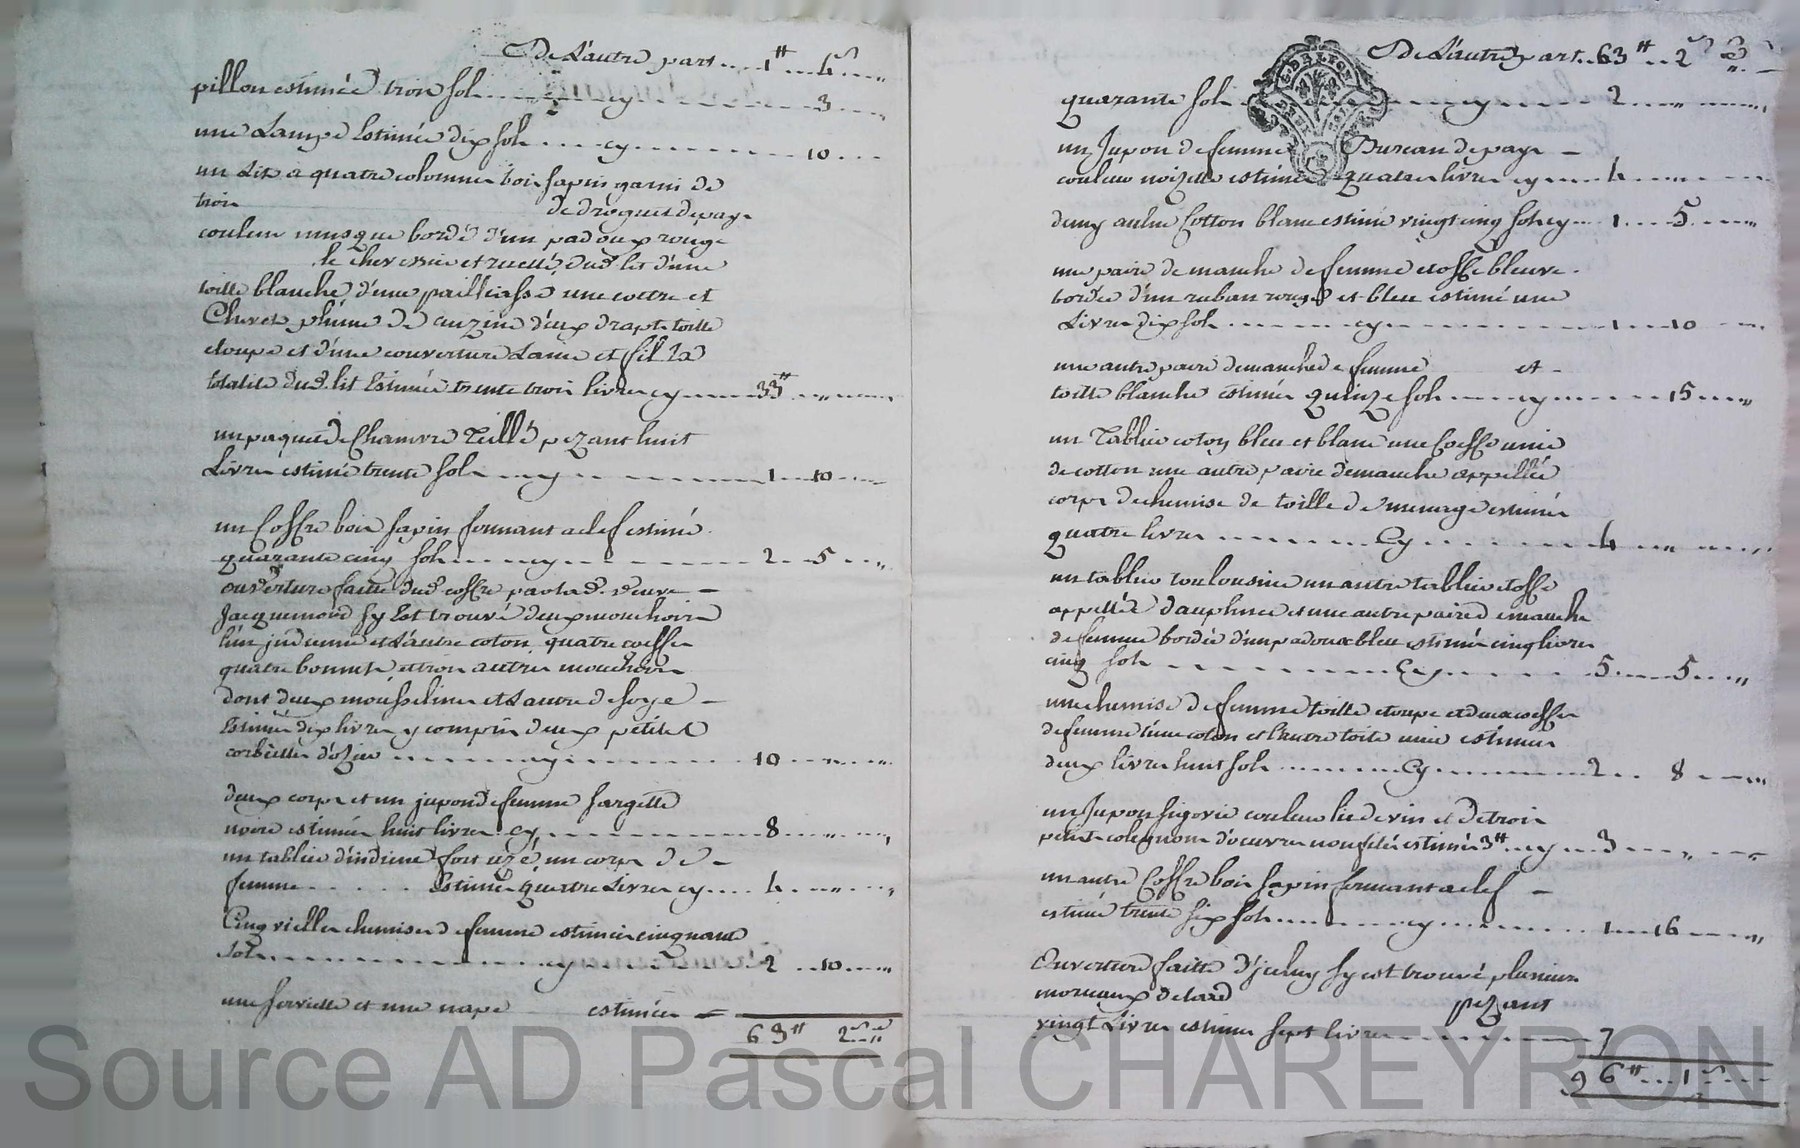 De L'autre part .... 1# .. 4s ..
pillon estimée trois sols ... cy ... 3 ...
une Lampe Estimée dix sols .... cy ... 10 ...
un Lit a quatre colonnes bois sapin garni de
trois de droguet de pays
couleur musque bordé d'un padoux rouge
le chevessié et ruellé dud. lit d'une
toille blanche d'une pailliasse une coetre et
Chevet plume de cuzine deux drapts toille
etoupe et d'une couverture Laine et fil La
totalité dud. lit Estimée trente trois livres cy ... 33# ...
un paquet de Chanvre Teillé pezant huit
Livres estimé trente sols ... cy ... 1 .. 10 ...
un Coffre bois sapin fermant a clef estimé
quarante cinq sols ... cy ... 2 .. 5 ...
ouverture faitte dud. coffre par lad. veuve
Jacquemond sy Est trouvé deux mouchoirs
l'un judienne et L'autre coton, quatre coeffes
quatre bonnets, et trois autres mouchoirs
dont deux mousselines et L'autre de soye
Estimés dix livres y compris deux petites
corbeilles d'ozier ... cy ... 10 ...
deux corps et un jupon de femme sargette
noire estimés huit livres cy ... 8 ...
un tablier d'indienne fort uzé, un corps de
femme ... Estimés quatre Livres cy .... 4 ...
Cinq vielles chemises de femme estimées cinquante
sols ... cy ... 2 .. 10 ...
une serviette et une nape estimées
63# 2s ..
De L'autre part .. 63# .. 2s
quarante sols ... cy ... 2 ...
un Jupon de femme Bureau de pays
couleur noizette estimé quatre livres cy ... 4 ...
demy aulne Cotton blanc estimé vingt cinq sols cy ... 1 ... 5 ...
une paire de manche de femme etoffe bleuve
bordée d'un ruban rouge et bleu estimé une
Livre dix sols ... cy ... 1 .. 10 ...
une autre paire de manche de femme et
toille blanche estimée quinze sols ... cy ... 15 ...
un Tablier coton bleu et blanc une Coeffe unie
de cotton une autre paire de manche appellée
corps de chemise de toille de menage estimés
quatre livres ... Cy ... 4 ...
un tablier toulousine un autre tablier etoffe
appellée dauphine et une autre paire de manche
de femme bordée d'un padoux bleu estimés cinq livres
cinq sols ... Cy ... 5 ... 5 ...
une chemise de femme toille etoupe et deux coeffes
de femme l'une coton et l'autre toile unie estimés
deux livres huit sols ... Cy ... 2 .. 8 ...
un Jupon sigovie couleur lie de vin et de trois
petits d'oeuvre non filé estimés 3# .. cy .. 3 ...
un autre Coffre bois sapin fermant a clef
estimé trente six sols ... cy ... 1 .. 16 ...
Ouverture faitte d'jceluy sy est trouvé plusieurs
morceaux de lard pezant
vingt Livres estimés sept livres ... 7
96# .. 1s ...
Source AD Pascal CHAREYRON